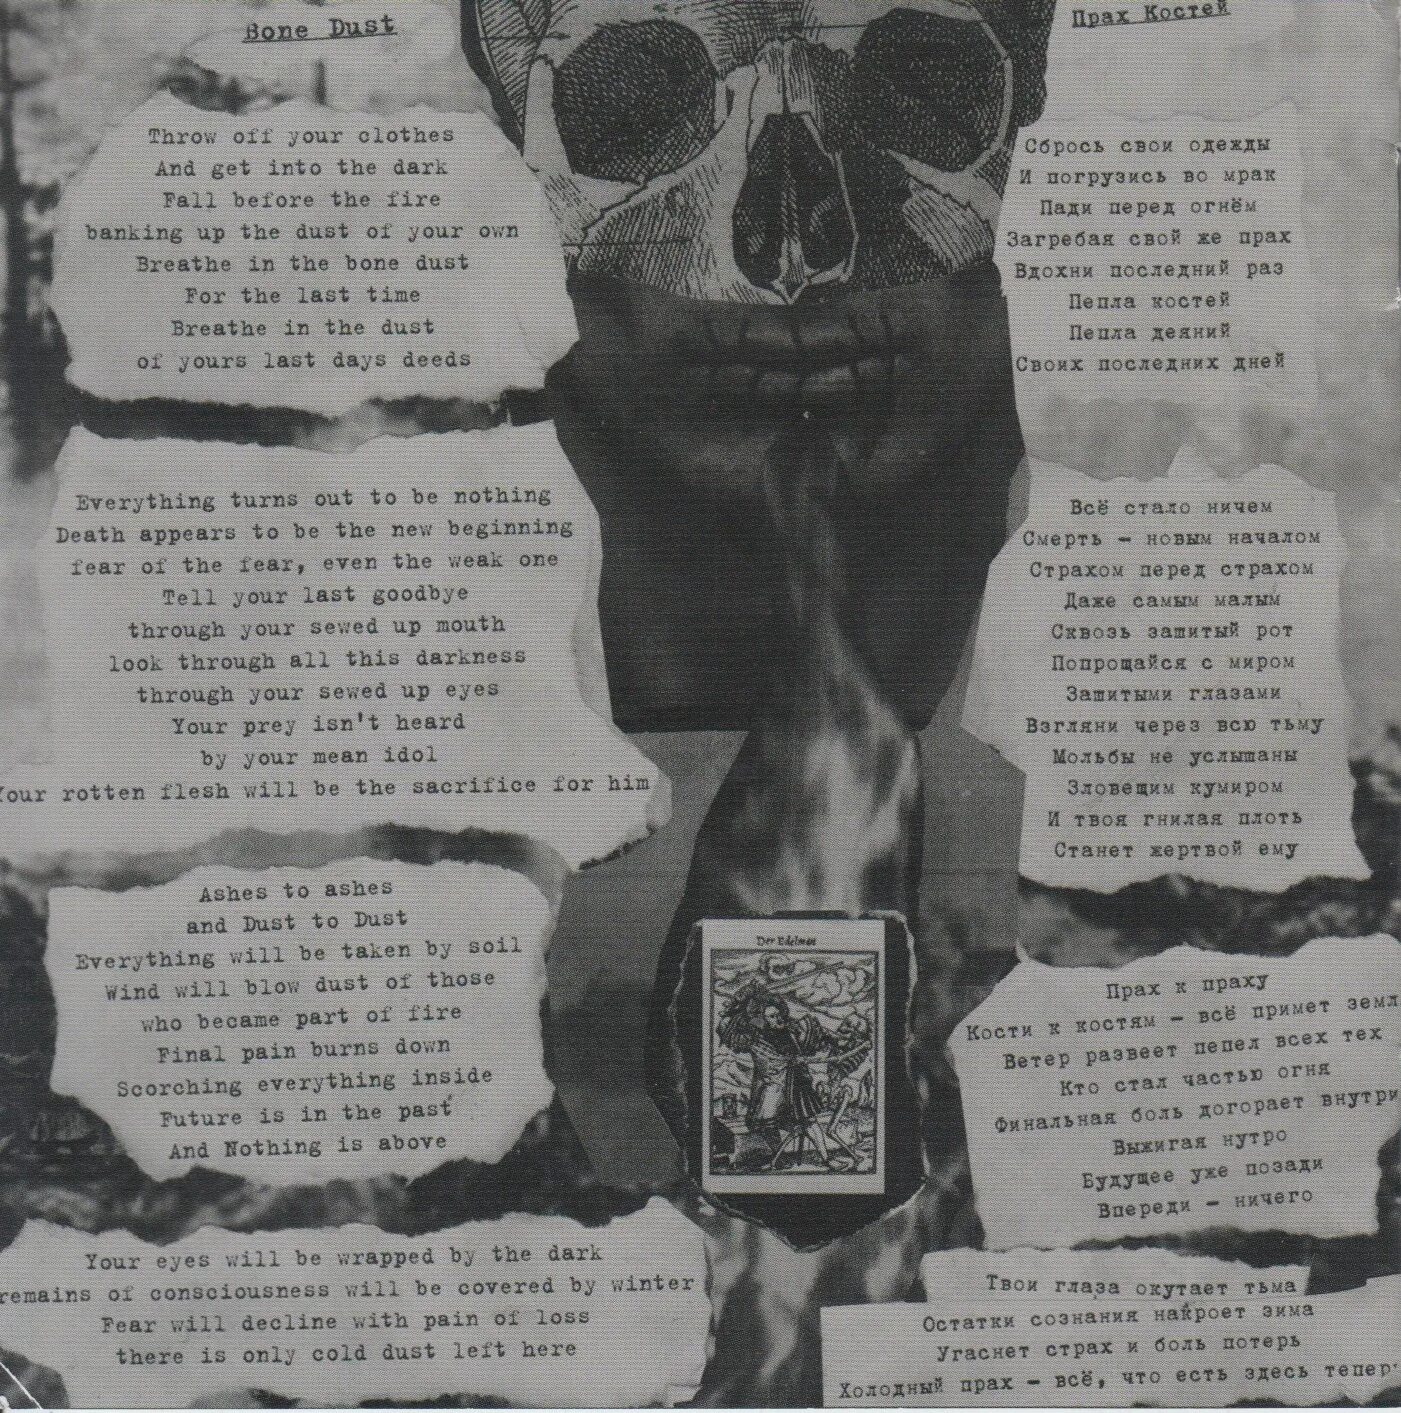 Bone Dust
Throw off your clothes
And get into the dark
Fall before the fire
banking up the dust of your own
Breathe in the bone dust
For the last time
Breathe in the dust
of yours last days deeds
Everything turns out to be nothing
Death appears to be the new beginning
fear of the fear, even the weak one
Tell your last goodbye
through your sewed up mouth
look through all this darkness
through your sewed up eyes
Your prey isn't heard
by your mean idol
Your rotten flesh will be the sacrifice for him
Ashes to ashes
and Dust to Dust
Everything will be taken by soil
Wind will blow dust of those
who became part of fire
Final pain burns down
Scorching everything inside
Future is in the past
And Nothing is above
Your eyes will be wrapped by the dark
remains of consciousness will be covered by winter
Fear will decline with pain of loss
there is only cold dust left here
Der Edelman
Прах Костей
Сбрось свои одежды
И погрузись во мрак
Пади перед огнём
Загребая свой же прах
Вдохни последний раз
Пепла костей
Пепла деяний
Своих последних дней
Всё стало ничем
Смерть — новым началом
Страхом перед страхом
Даже самым малым
Сквозь зашитый рот
Попрощайся с миром
Зашитыми глазами
Взгляни через всю тьму
Мольбы не услышаны
Зловещим кумиром
И твоя гнилая плоть
Станет жертвой ему
Прах к праху
Кости к костям — всё примет земл
Ветер развеет пепел всех тех
Кто стал частью огня
Финальная боль догорает внутри
Выжигая нутро
Будущее уже позади
Впереди — ничего
Твои глаза окутает тьма
Остатки сознания накроет зима
Угаснет страх и боль потерь
Холодный прах — всё, что есть здесь тепер